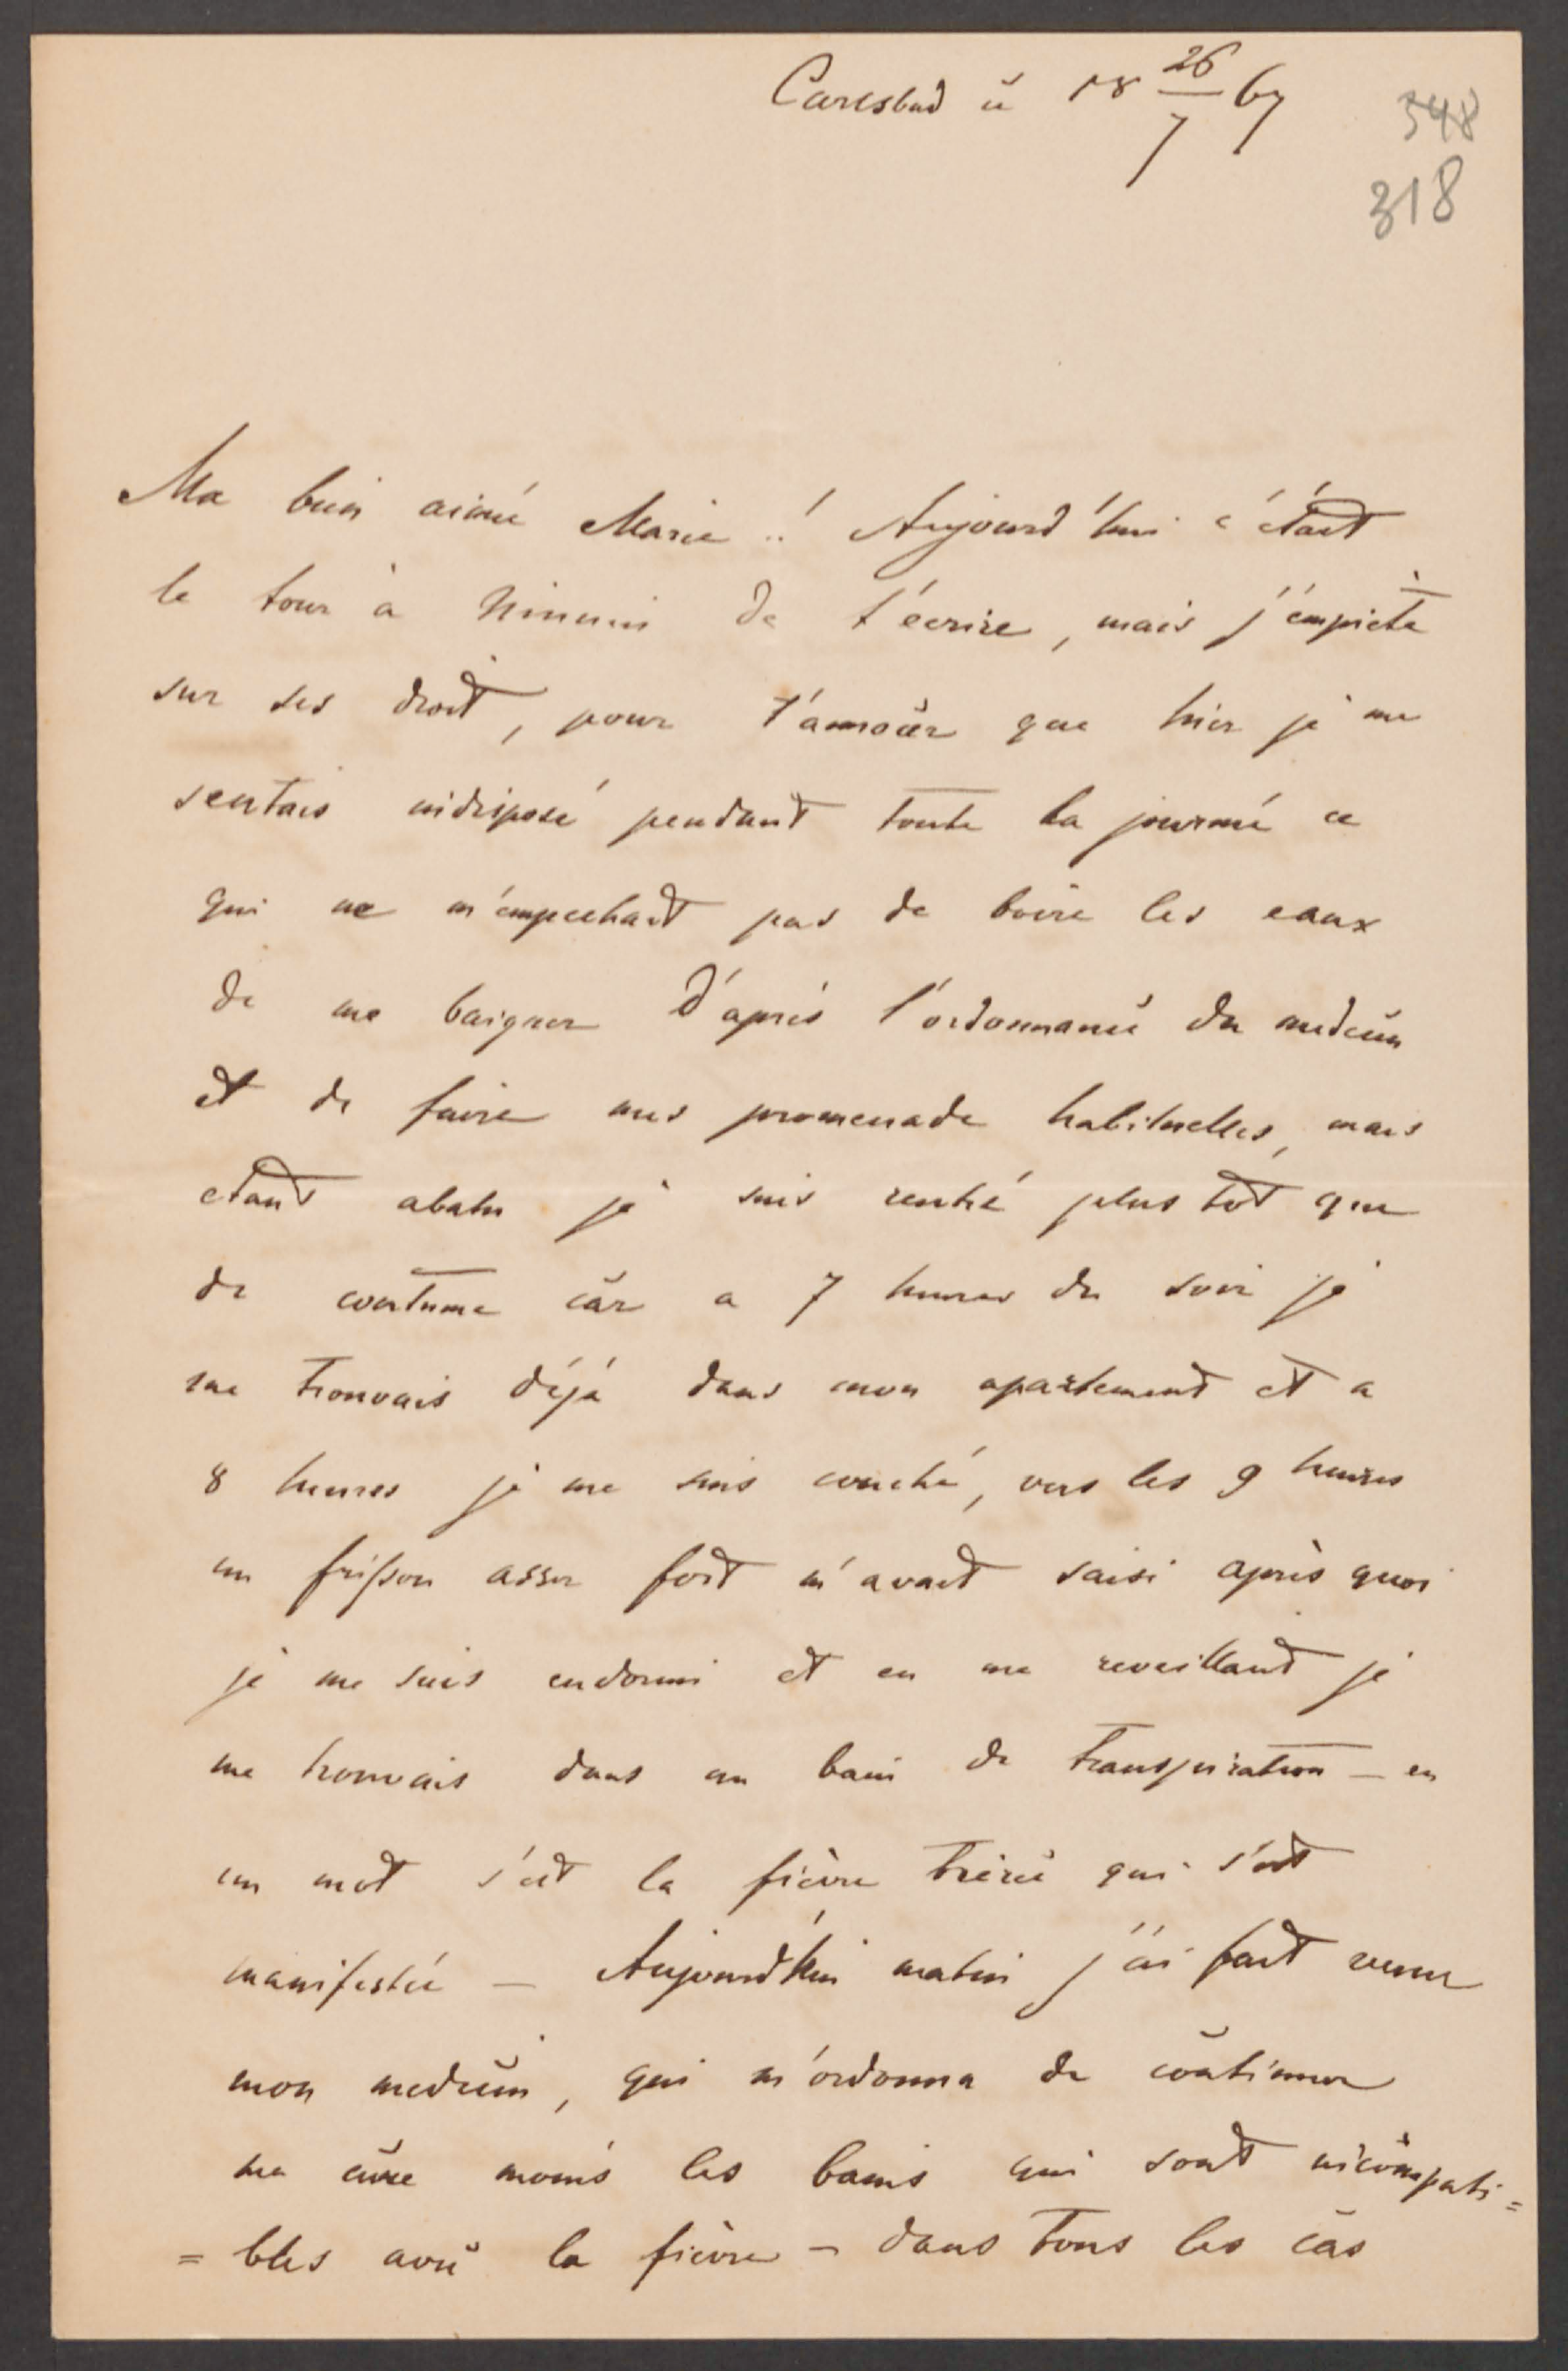 Carlsbad ü 18 26/7 67
548
318
Ma bien aimée Marie ..! Aujourd'hui c'était
le tour à Ninini de t'écrire, mais j'empiète
sur ses droit, pour que hier je me
sentais indisposé pendant toute la journé ce
qui ne m'empechait pas de boire les eaux
de me baigner d'après l'ordonnance du medecin
et de faire mes promenade habituelles, mais
etant abatu je suis rentré plus tôt que
de coutume car a 7 heures du soir je
me trouvais déjà dans mon apartement et a
8 heures je me suis couché, vers les 9 heures
un frisson assez fort m'avait saisi après quoi
je me suis endormi et en me reveillant je
me trouvais dans un bain de transpiration – en
un mot s'est la fièvre qui s'est
manifestée – Aujourd'hui matin j'ai fait venir
mon medecin, qui m'ordonna de continuer
ma cure moins les bains qui sont incompati=
=bles avec la fièvre – dans tous les cas